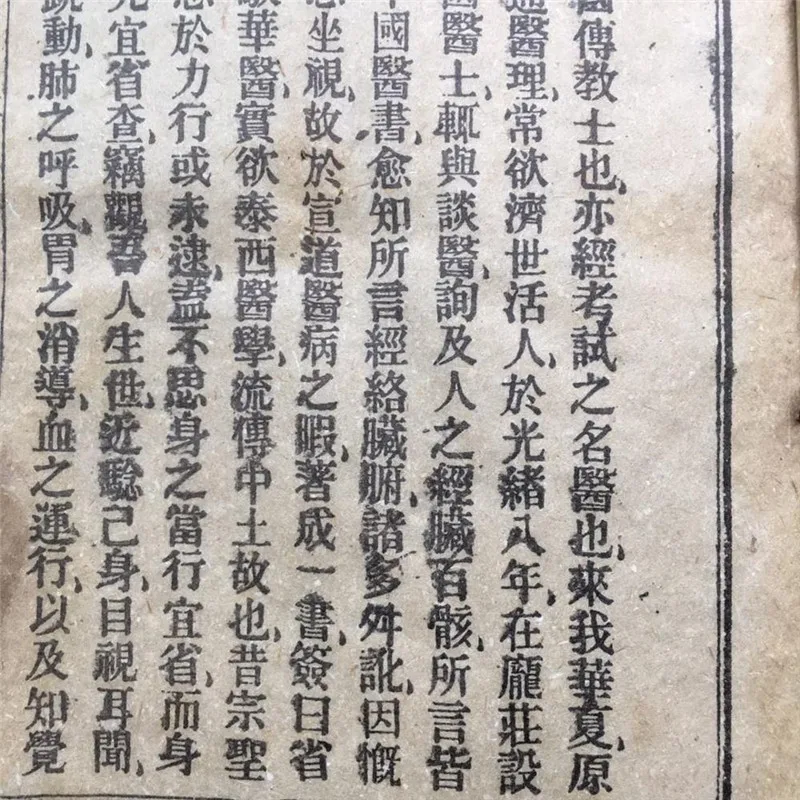 國傳教士也、亦經考試之名醫也、來我華夏、原
通醫理、常欲濟世活人、於光緒八年、在龐莊設
醫士、輒與談醫、詢及人之經臟百骸、所言皆
國醫書、愈知所言經絡臟腑、諸多舛訛、因慨
坐視、故於宣道醫病之暇、著成一書、簽曰省
華醫、實欲泰西醫學、流傳中土故也、昔宗聖
於力行或未逮、蓋不思身之當行宜省、而身
宜省查、竊觀吾人生世、近驗己身、目視耳聞、
跳動、肺之呼吸、胃之消導、血之運行、以及知覺